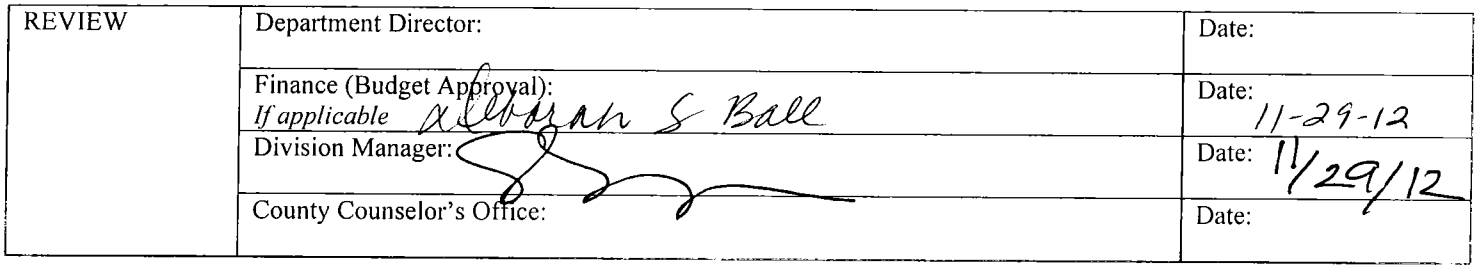 REVIEW
Department Director:
Date:
Finance (Budget Approval):
Date:
If applicable Deborah S Ball
11-29-12
Division Manager:
Date: 11/29/12
County Counselor's Office:
Date: